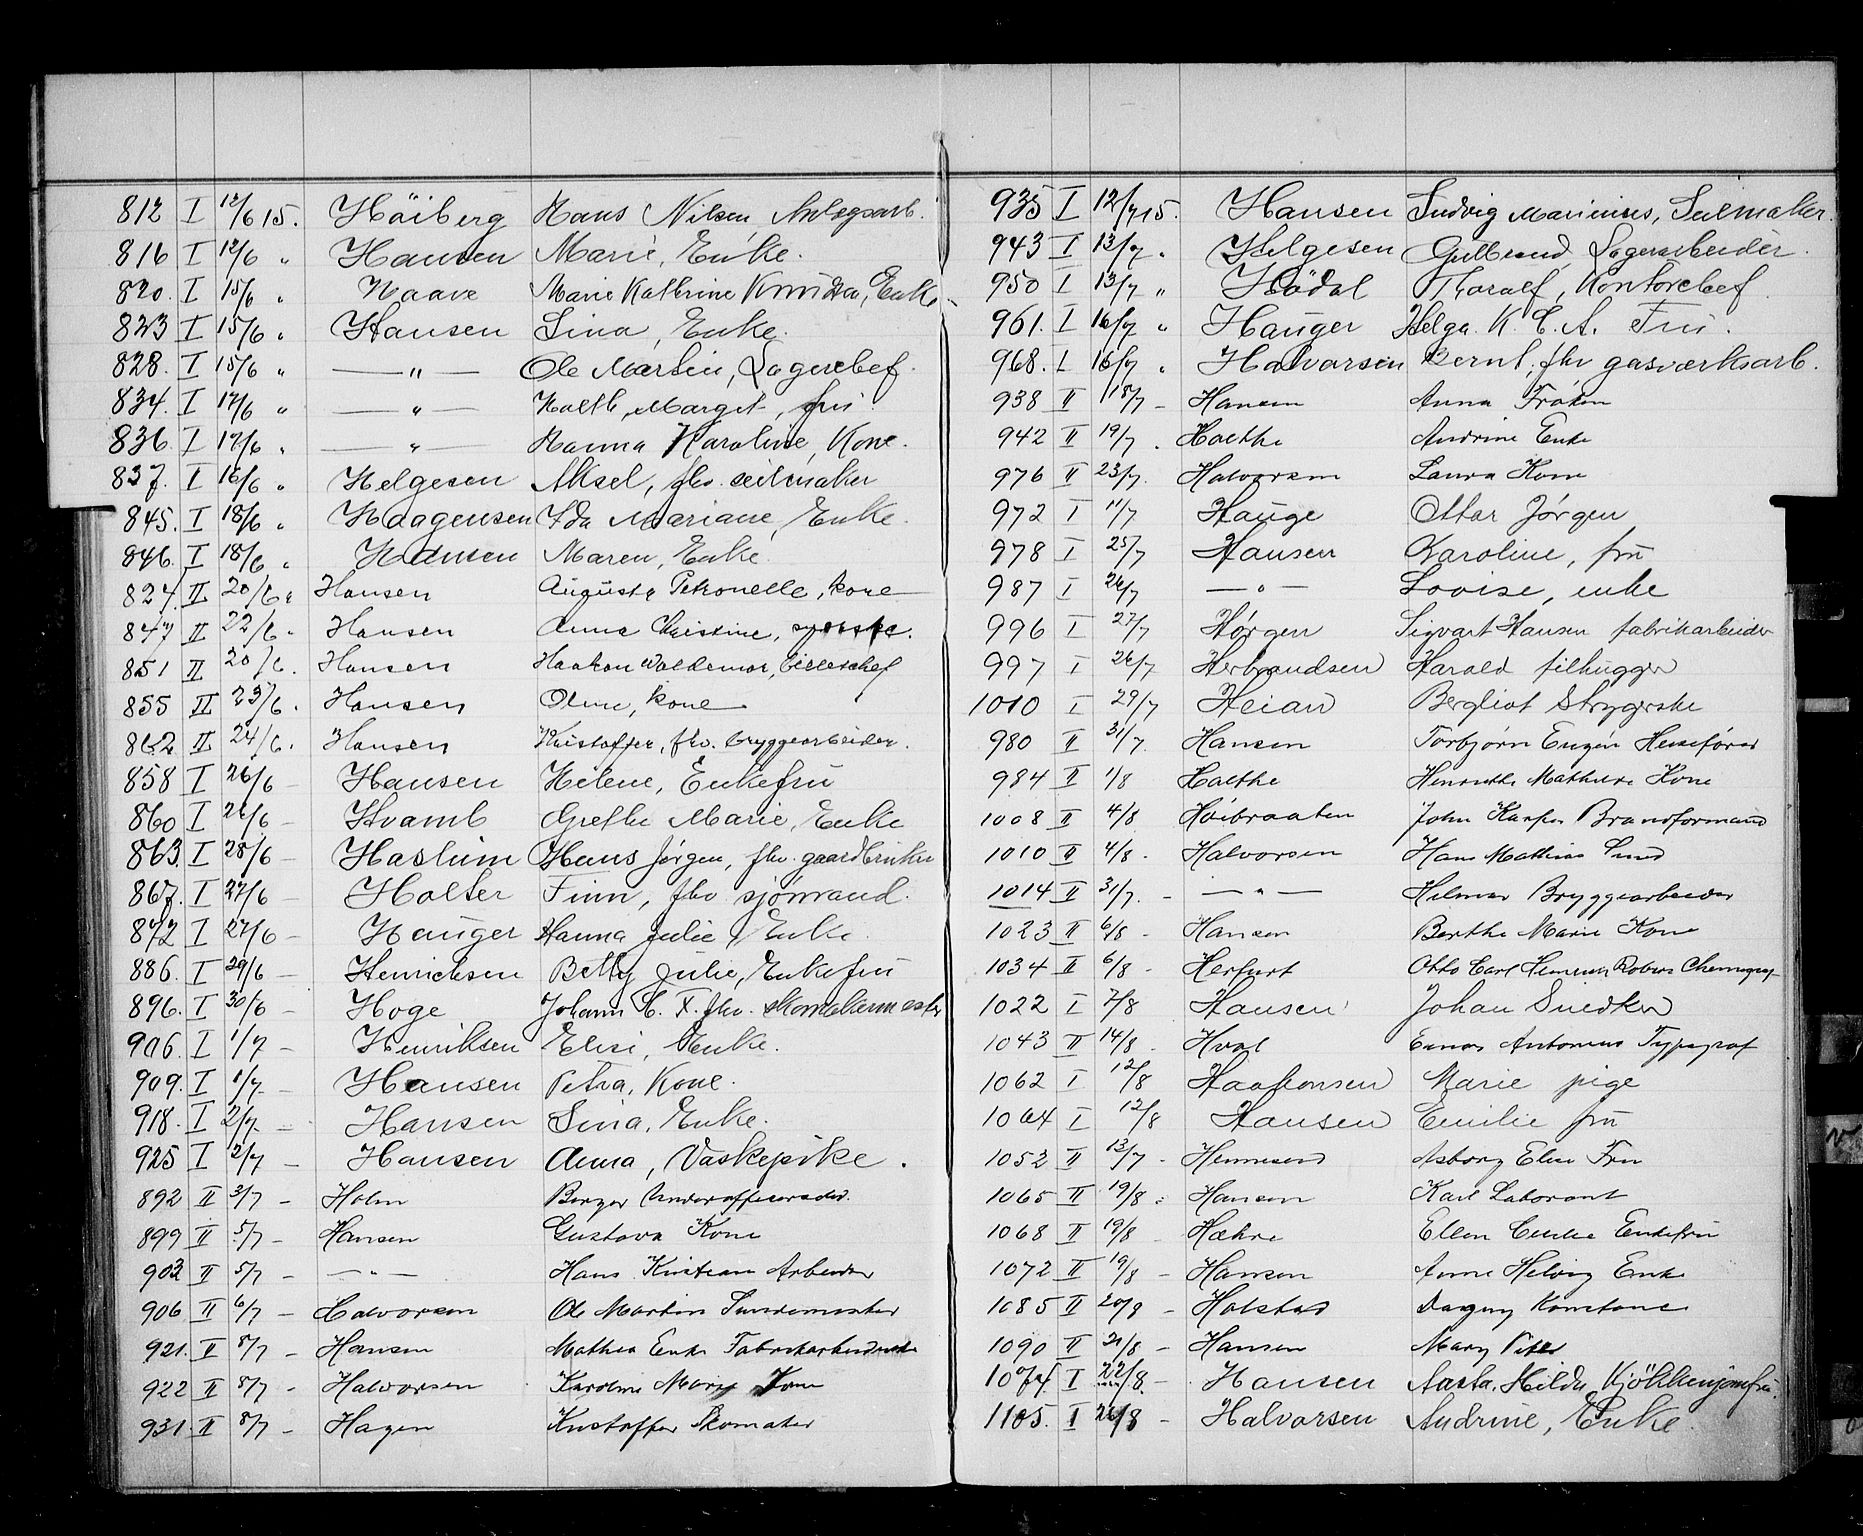 812 I 12/6 15. Höiberg Hans Nilsen, Anlægsarb.
816 I 12/6 " Hansen Marie, Enke.
820. I 15/6 " Haave Marie Kathrine Knudsen, Enke
823 I 15/6 " Hansen Lina, Enke.
828. I 15/6 " —"— Ole Martin, Lagerchef.
834. I 17/6 " —"— Holth, Margit, fru.
836. I 17/6 " —"— Hanna Karoline, Kone.
837. I 16/6 " Helgesen Aksel, fhv. seilmaker
845. I 18/6 " Haagensen Ida Mariane, Enke.
846. I 18/6 " Hansen Maren, Enke.
824. II 20/6 " Hansen Augusta Petronelle, kone
847 II 22/6 " Hansen Anna Christine,
851 II 20/6. Hansen Haakon Waldemar,
855 II 23/6. Hansen Oline, kone
862 II 24/6. Hansen Kristoffer, fhv. bryggearbeider.
858 I 26/6 – Hansen Helene, Enkefru
860 I 26/6 – Hvamb Grethe Marie, Enke
863. I 28/6 – Haslum Hans Jørgen, fhv. gaardbruker
867. I 27/6 – Holter Finn, fhv sjömand.
872 I 27/6 – Hauger Hanna Julie, Enke.
886. I 29/6 – Henrichsen Betty Julie, Enkefru
896. I 30/6 – Hoge Johann C. F. fhv.
906. I 1/7 – Henriksen Elise, Enke.
909. I 1/7 – Hansen Petra, Kone.
918. I 2/7 – Hansen Lina, Enke.
925 I 2/7 – Hansen Anna, Vaskepike.
892 II 3/7 – Holm Birger Underofficerselev.
899 II 5/7 – Hansen Gustava Kone
903 II 5/7 – —"— Hans Kristian Arbeider
906 II 6/7 – Halvorsen Ole Martin
921. II 8/7 – Hansen Mathea Enke Fabrikarbeiderske
922 II 8/7 – Halvorsen Karoline Mary Kone
931. II 8/7 – Hagen Kristoffer Skomaker
935 I 12/7 15. Hansen Ludvig Marinius, Seilmaker.
943 I 13/7 " Helgesen Gulbrand, Lagerarbeider.
950 I 13/7 " Hødal Thoralf, Kontorchef
961. I 16/7 " Hauger Helga K. C. A. Fru.
968. I 16/7 " Halvorsen Bernt, fhv gasværksarb.
938 II 15/7 – Hansen Anna Frøken
942 II 19/7 . Holthe Andrine Enke
976 II 23/7. Halvorsen Laura Kone
972 I 11/7 Hauge Ottar Jørgen
978 I 25/7 Hansen Karoline, fru
987 I 26/7 —"— Lovise, enke
996 I 27/7 Hørgen Sigvart Hansen fabrikarbeider
997 I 26/7 Herbrandsen Harald filhugger
1010 I 29/7 Heian Bergliot Strygerske
980 II 31/7. Hansen Torbjørn Eugén Heisefører
984 II 1/8 Holthe Henriette Mathilde Kone
1008 II 4/8 Høibraaten John Kasper Brandformand
1010 II 4/8 . Halvorsen Hans Mathias Smed
1014 II 31/7. – —"— Hilmar Bryggearbeider
1023 II 6/8 – Hansen Berthe Marie Kone
1034 II 6/8 – Herfurt Otto Carl Heinrich Robert Chemigraf
1022 I 7/8 Hansen Johan Snedker
1043 II 14/8. Hval Einar Antonius Typograf
1062 I 12/8 Haakonsen Marie pige
1064 I 12/8 Hansen Emilie fru
1052 II 13/7 – Hennesend Asborg Elise Fru
1065 II 19/8 : Hansen Karl Laborant
1068 II 19/8 Hæhre Ellen Cecilie Enkefru
1072 II 19/8 – Hansen Anne Helvig Enke
1085 II 20/8 – Holstad Dagny Konstanse
1090 II 21/8 – Hansen Mary
1074 I 22/8. – Hansen Aasta Hilda, Kjökkenjomfru
1105. I 26/8 – Halvorsen Andrine, Enke.